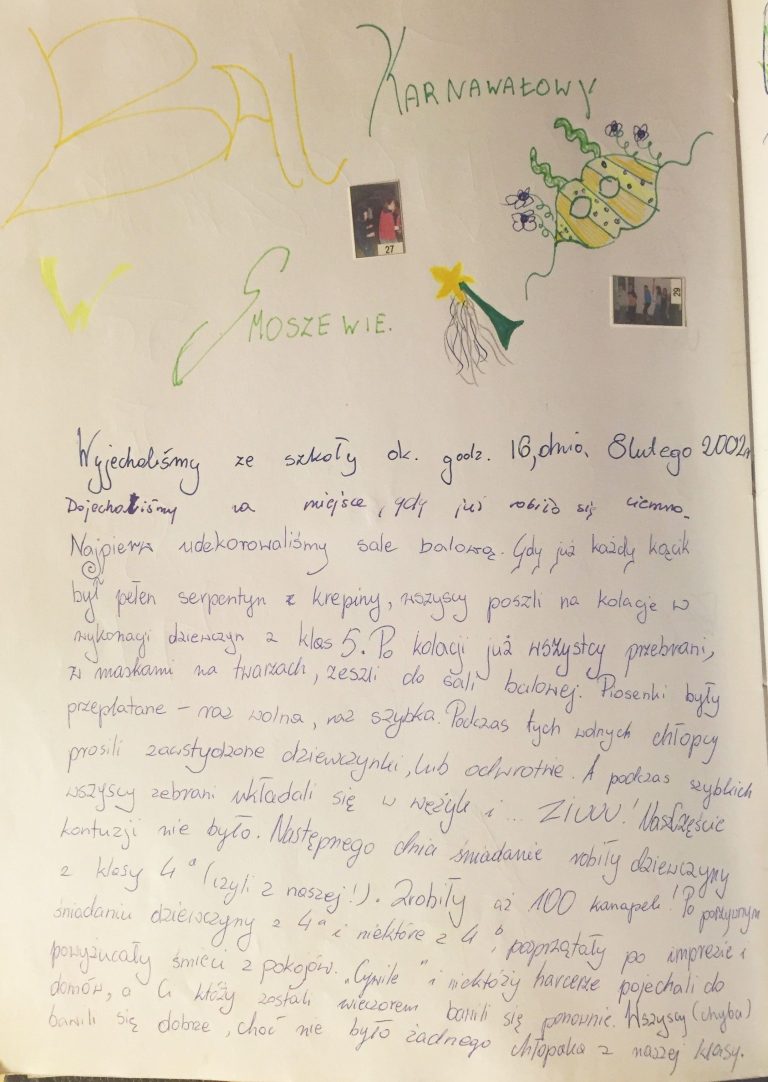 BAL KARNAWAŁOWY
27
W SMOSZEWIE.
29
Wyjechaliśmy ze szkoły ok. godz. 16, dnia 8 lutego 2002r
Dojechaliśmy na miejsce, gdy już robiło się ciemno.
Najpierw udekorowaliśmy sale balową. Gdy już każdy kącik
był pełen serpentyn z krepiny, wszyscy poszli na kolacje w
wykonagi dziewczyn z klas 5. Po kolagi już wszystcy przebrani,
z maskami na twarzach, zeszli do sali balowej. Piosenki były
przeplatane - raz wolna, raz szybka. Podczas tych wolnych chłopcy
prosili zawstydzone dziewczynki, lub odwrotnie. A podczas szybkich
wszyscy zebrani układali się w wężyk i ... ZIUUU! Naszczęście
kontuzji nie było. Następnego dnia śniadanie robiły dziewczyny
z klasy 4a (czyli z naszej!). Zrobiły aż 100 kanapek! Po pożywnym
śniadaniu dziewczyny z 4a i niektóre z 4b, posprzątały po imprezie i
powyżucały śmieci z pokojów. "Cywile" i niektóży harcerze pojechali do
domów, a Ci któży zostali wieczorem bawili się ponownie. Wszyscy (chyba)
bawili się dobrze, choć nie było żadnego chłopaka z naszej klasy.